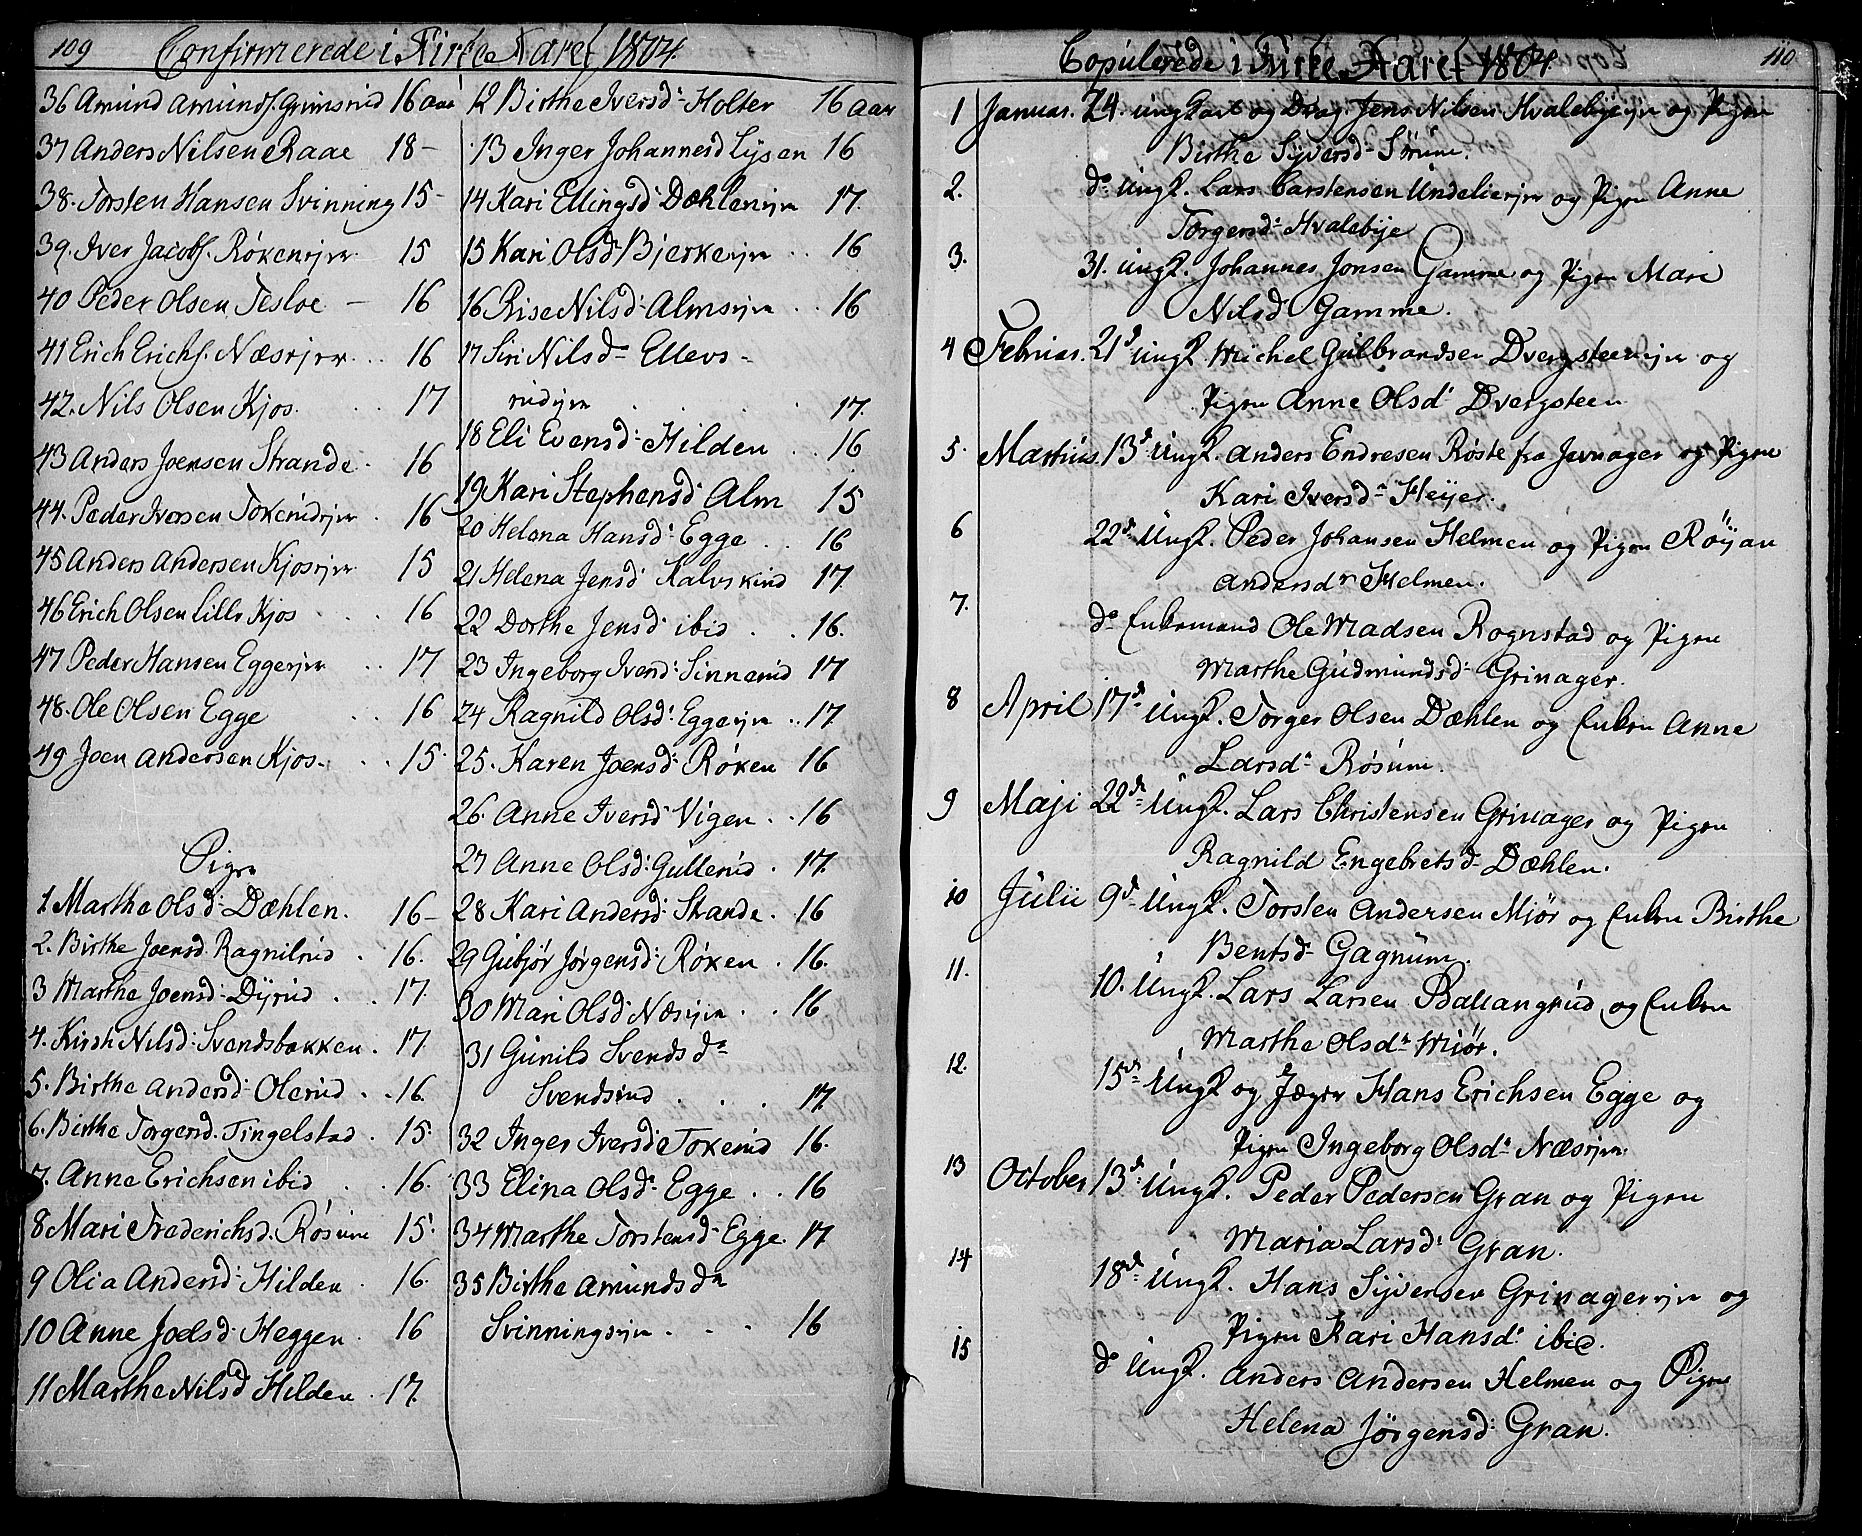 109 Confirmerede i Kirke Aaret 1804.
36 Amund Amunds. Grimsrud 16 aar
37 Anders Nilsen Raae 18 -
38. Torsten Hansen Svinning 15 -
39. Iver Jacobs. Røkenejer 15
40 Peder Olsen Tesloe - 16
41 Erich Erichs. Næsejer . . 16
42. Nils Olsen Kjos. . . 17
43 Anders Joensen Strande . 16
44. Peder Iversen Tokerudejer . 16
45 Anders Andersen Kjosejer 15
46 Erich Olsen Lille Kjos . . . 16
47 Peder Hansen Eggeejer . . 17
48. Ole Olsen Egge . . 16
49 Joen Andersen Kjos . . . 15.
Piger
1. Marthe Olsd: Dæhlen. 16 -
2. Birthe Joensd. Ragnilrud . 16.
3 Marthe Joensd: Dÿrud . . 17.
4. Kirsh Nilsd: Svendsbakken . 17.
5. Birthe Andersd: Olerud . . 16.
6. Birthe Torgersd. Tingelstad . 15.
7. Anne Erichsen ibid . . 16.
8 Mari Frederichsd. Røsum 15.
9 Olia Andersd: Hilden . 16.
10 Anne Joelsd: Heggen . 16
11 Marthe Nilsd Hilden . 17.
12 Birthe Iversd: Holter 16 aar
13 Inger Johannesd Lysen 16
14 Kari Ellingsd: Dæhlenejer 17.
15 Kari Olsd: Bjerkeejer . . 16
16 Rise Nilsd: Almsejer . . 16
17 Siri Nilsd: Ellevs-
rudejer . . . . 17.
18 Eli Evensd: Hilden . . 16
19 Kari Stephensd: Alm 15
20 Helena Hansd: Egge . . 16
21 Helena Jensd: Kalvskind 17.
22 Dorthe Jensd: ibid . . 16.
23 Ingeborg Iversd: Sinnerud 17
24 Ragnild Olsd: Eggeejer . . 17.
25. Karen Joensd: Røken 16
26. Anne Iversd: Vigen . . 16
27 Anne Olsd: Gullerud . 17.
28 Kari Andersd: Strande . . 16
29 Gubjør Jørgensd: Røken . 16.
30 Mari Olsd: Næsejer . . 16
31 Gunild Svendsdr
Svendsrud . . . 17.
32 Inger Iversd: Tokerud 16.
33 Elina Olsd: Egge . . 16
34 Marthe Torstensd: Egge. 17
35 Birthe Amundsdr
Svinningsejer . . . 16
Copulerede i Kirke Aaret 1804. 110
1 Januar. 24. Ungkarl og Drag. Jens Nilsen Hvalebyeejer og Pigen
Birthe Syversd: Sørum.
2. do Ungk. Lars Carstensen Undelieejer og Pigen Anne
Torgersd: Hvalebye
3. 31. Ungk. Johannes Jonsen Gamme og Pigen Mari
Nilsd Gamme.
4 Februar. 21d Ungk. Michel Gulbrandsen Dvergsteenejer og
Pigen Anne Olsd: Dvergsteen
5. Martius 13d: Ungk. Anders Endresen Røste fra Jevnager og Pigen
Kari Iversdr Heyer.
6 22d: Ungk. Peder Johansen Helmen og Pigen Röijan
Andersdr Helmen.
7. do Enkemand Ole Madsen Rognstad og Pigen
Marthe Gudmundsd: Grinager.
8 April 17d: Ungk. Torger Olsen Dæhlen og Enken Anne
Larsdr Røsum.
9 Maji 22d: Ungk. Lars Christensen Grinager og Pigen
Ragnild Engebretsd: Dæhlen.
10 Julii 9d: Ungk. Torsten Andersen Mjør og Enken Birthe
Bentsd: Gagnum.
11. 10. Ungk. Lars Larsen Ballangrud og Enken
Marthe Olsdr Mjør.
12. 15d: Ungk og Jæger Hans Erichsen Egge og
Pigen Ingeborg Olsdr Næsejer.
13 October 13d: Ungk. Peder Pedersen Gran og Pigen
Maria Larsd: Gran.
14 18d: Ungk. Hans Syversen Grinagerejer og
Pigen Kari Hansd: ibid.
15 do Ungk. Anders Andersen Helmen og Pigen
Helena Jørgensd: Gran.